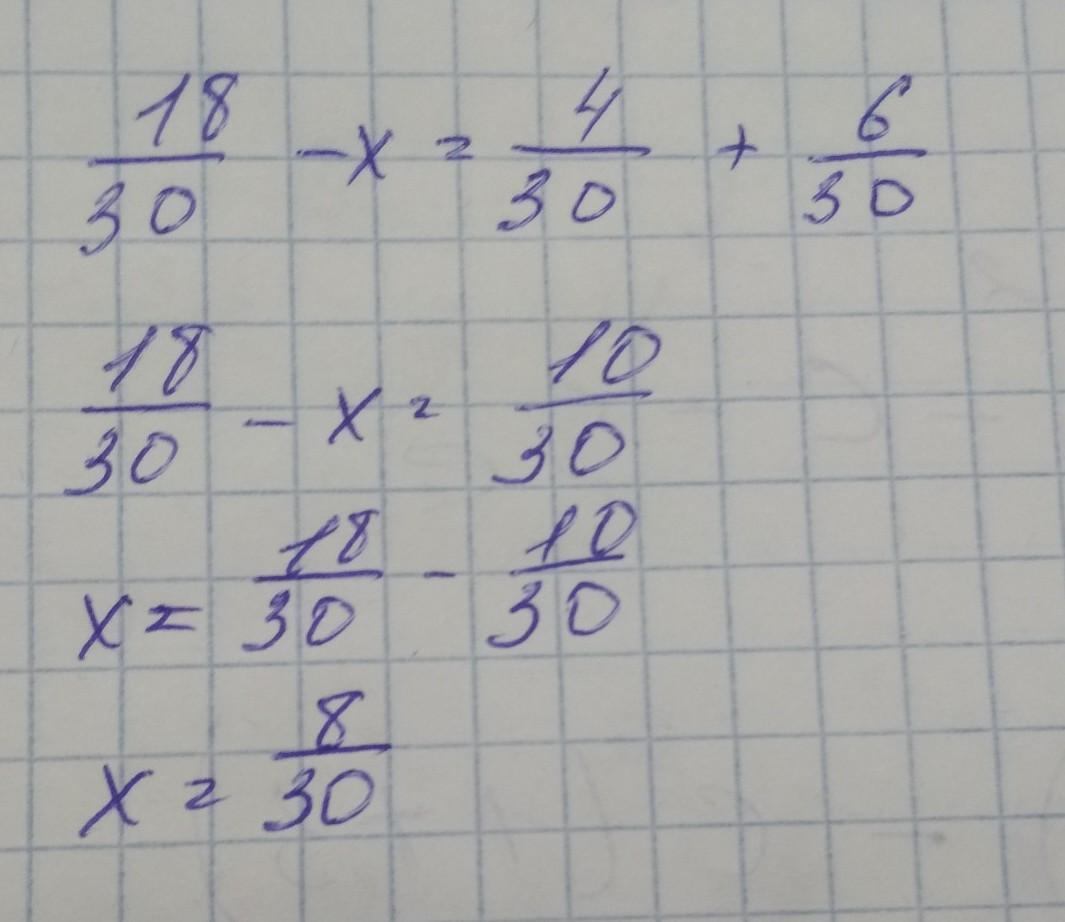 18/30 - x = 4/30 + 6/30
18/30 - x = 10/30
x = 18/30 - 10/30
x = 8/30